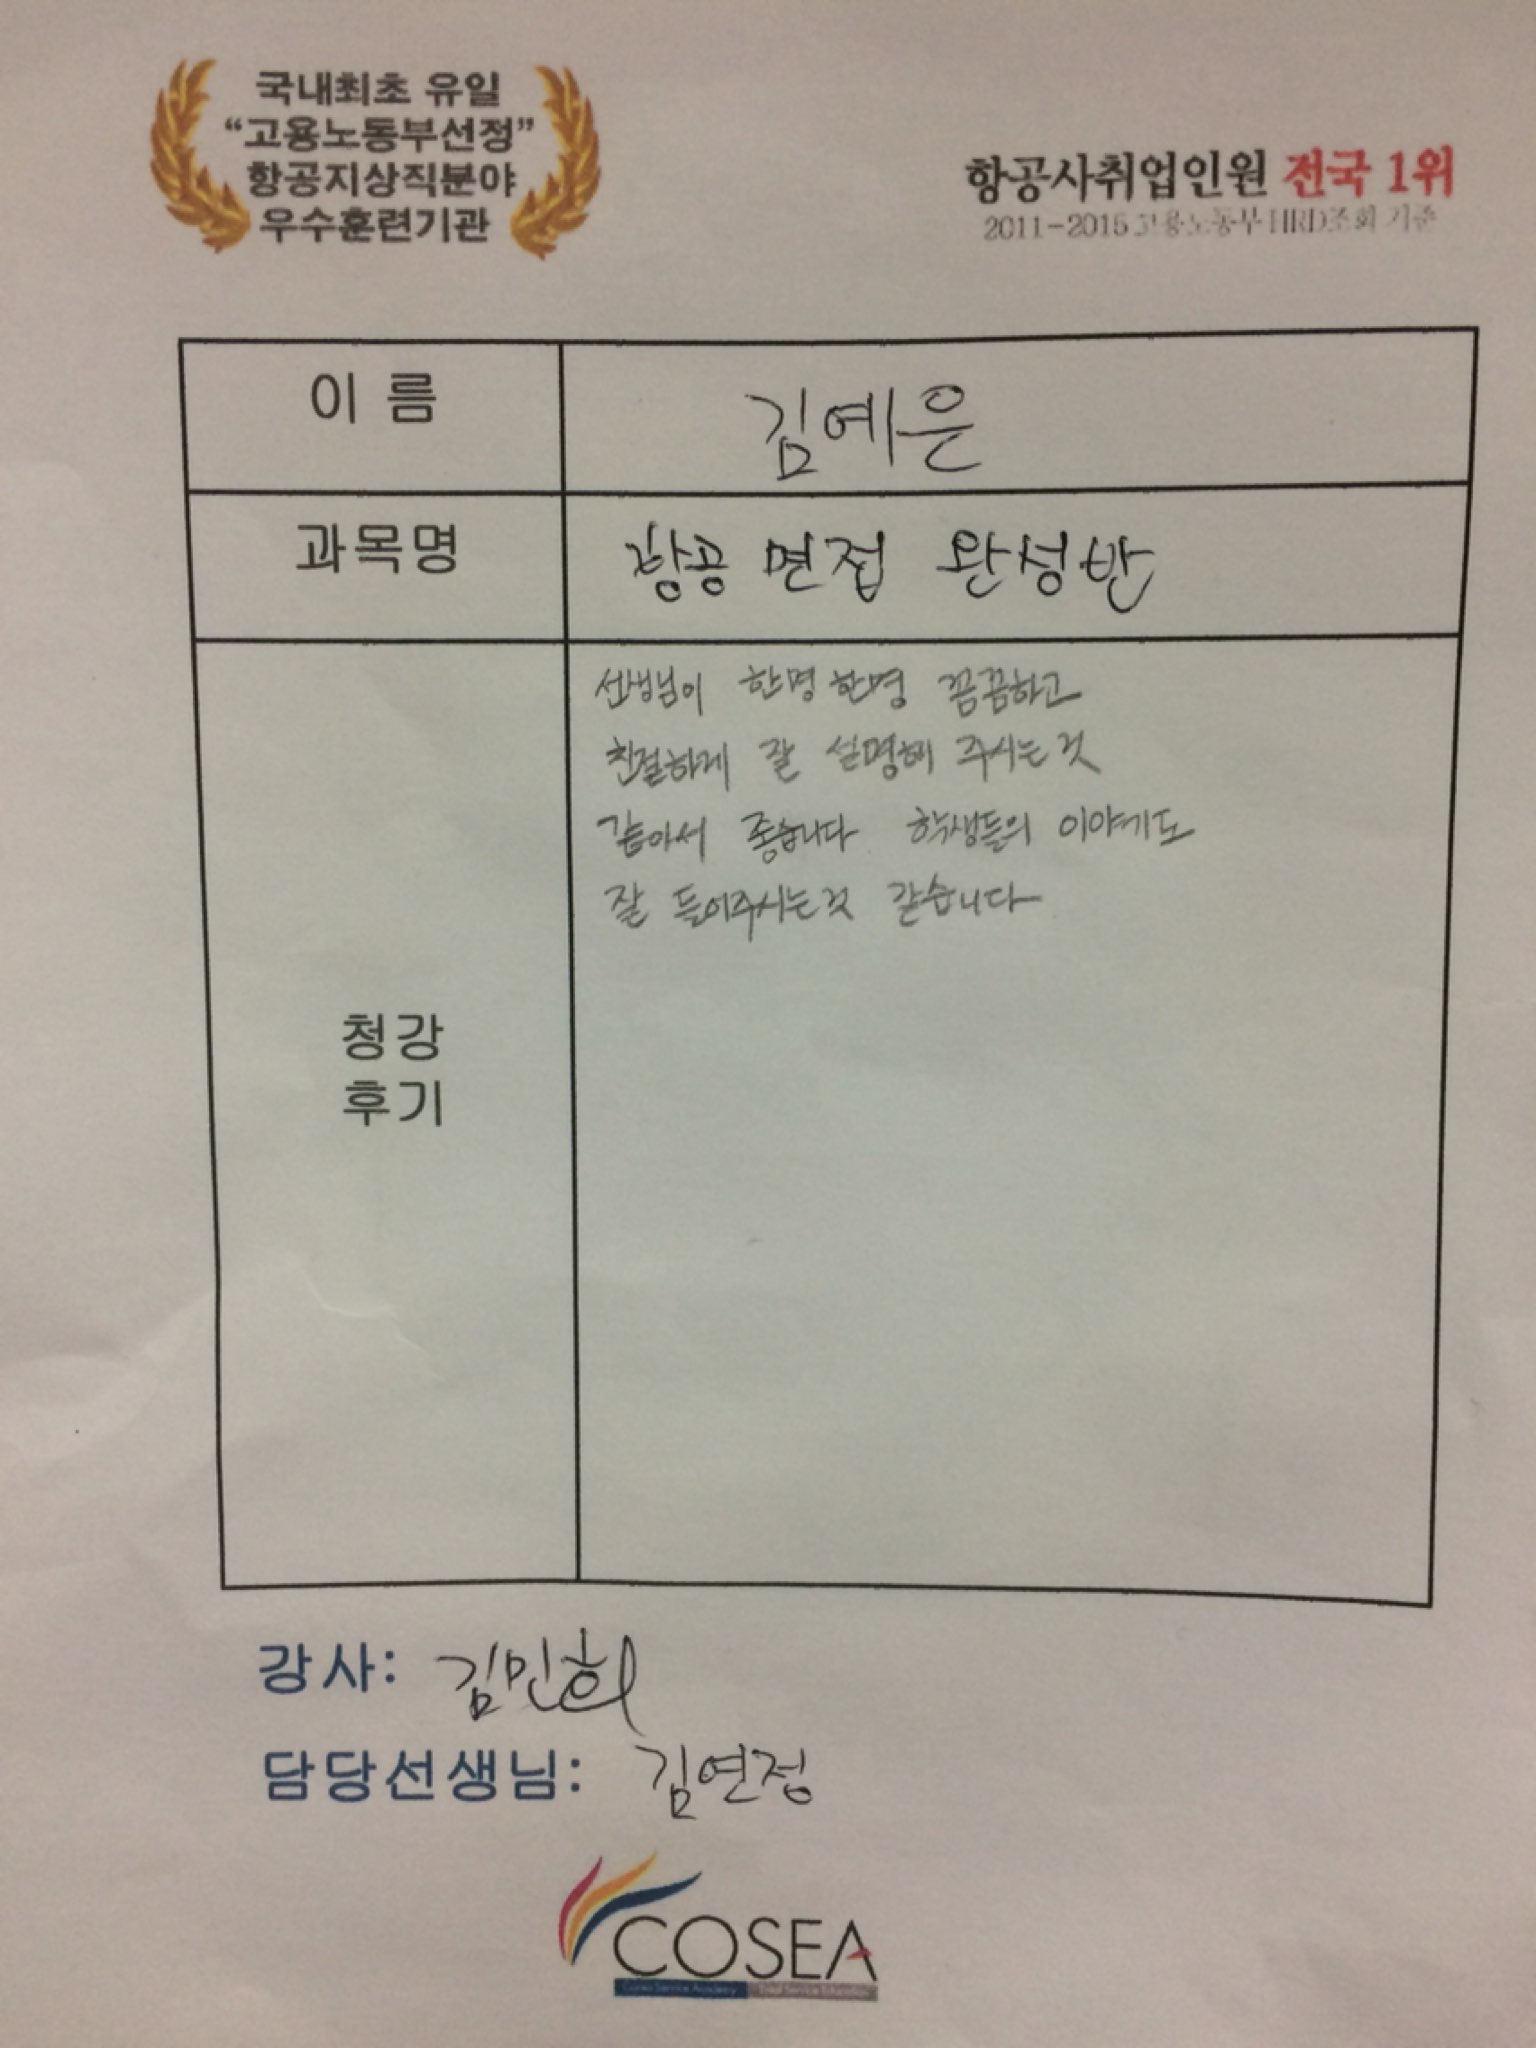 국내최초 유일
“고용노동부선정”
항공지상직분야
우수훈련기관
항공사취업인원 전국 1위
2011-2015 고용노동부 HRD조회 기준
이 름
김예은
과목명
항공 면접 완성반
청강
후기
선생님이 한명 한명 꼼꼼하고
친절하게 잘 설명해 주시는것
같아서 좋습니다 학생들의 이야기도
잘 들어주시는것 같습니다
강사: 김민희
담당선생님: 김연정
COSEA